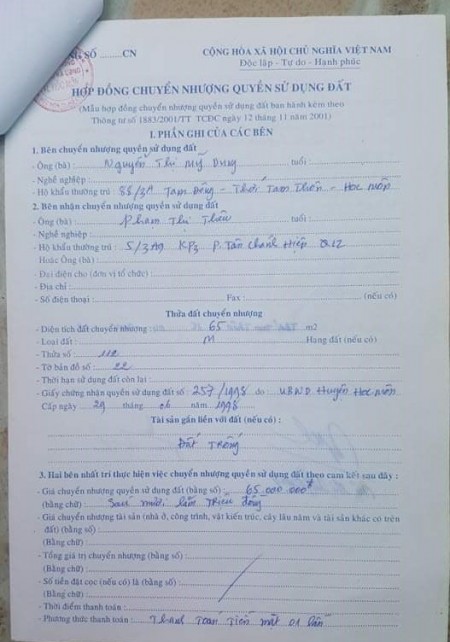 NG SỐ ......CN
CỘNG HÒA XÃ HỘI CHỦ NGHĨA VIỆT NAM
Độc lập - Tự do - Hạnh phúc
HỢP ĐỒNG CHUYỂN NHƯỢNG QUYỀN SỬ DỤNG ĐẤT
(Mẫu hợp đồng chuyển nhượng quyền sử dụng đất ban hành kèm theo
Thông tư số 1883/2001/TT TCĐC ngày 12 tháng 11 năm 2001)
I. PHẦN GHI CỦA CÁC BÊN
1. Bên chuyển nhượng quyền sử dụng đất
- Ông (bà) : Nguyễn Thị Mỹ Dung tuổi :
- Nghề nghiệp :
- Hộ khẩu thường trú : 83/3A Tam Đông - Thới Tam Thôn - Hóc Môn
2. Bên nhận chuyển nhượng quyền sử dụng đất
- Ông (bà) : Phạm Thị tuổi :
- Nghề nghiệp :
- Hộ khẩu thường trú : 5/3A9 KP3 P. Tân Chánh Hiệp Q12
Hoặc Ông (bà) :
- Đại diện cho (đơn vị tổ chức) :
- Địa chỉ :
- Số điện thoại : Fax : (nếu có)
Thửa đất chuyển nhượng
- Diện tích đất chuyển nhượng : 65 m2
- Loại đất : M Hạng đất (nếu có) :
- Thửa số : 112
- Tờ bản đồ số : 22
- Thời hạn sử dụng đất còn lại :
- Giấy chứng nhận quyền sử dụng đất số : 257/1998 do : UBND Huyện Hóc Môn
Cấp ngày 29 tháng 06 năm 1998
Tài sản gắn liền với đất (nếu có) :
Đất Trống
3. Hai bên nhất trí thực hiện việc chuyển nhượng quyền sử dụng đất theo cam kết sau đây :
- Giá chuyển nhượng quyền sử dụng đất (bằng số) : 65 000 000đ
(bằng chữ) : Sáu mươi lăm triệu đồng
- Giá chuyển nhượng tài sản (nhà ở, công trình, vật kiến trúc, cây lâu năm và tài sản khác có trên
đất) (bằng số) :
(Bằng chữ) :
- Tổng giá trị chuyển nhượng (bằng số) :
(Bằng chữ) :
- Số tiền đặt cọc (nếu có) là (bằng số) :
(Bằng chữ) :
- Thời điểm thanh toán :
- Phương thức thanh toán : Thanh Toán Tiền mặt 01 lần